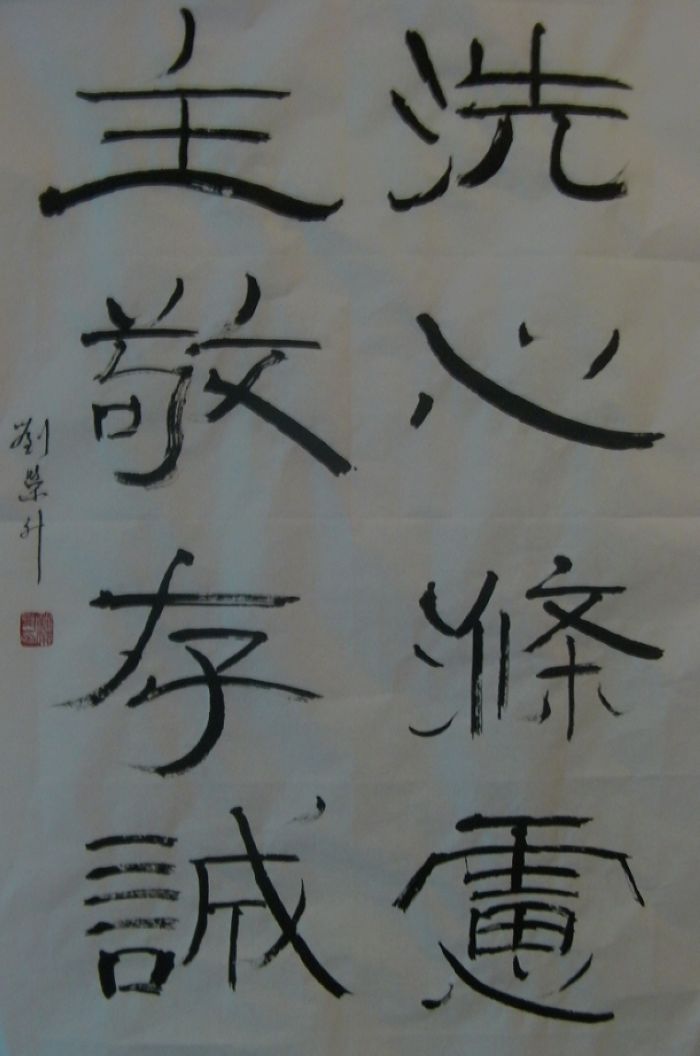 洗心滌慮
主敬存誠
劉榮升